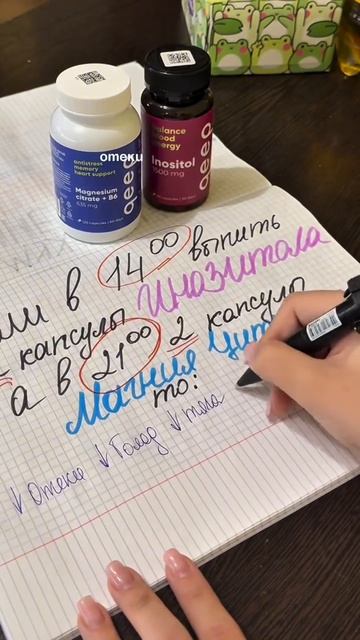 antistress
memory
heart support
Magnesium
citrate + B6
635 mg
qeep
отеки
balance
mood
energy
Inositol
1500 mg
qeep
в 14 00 выпить
капсулы Иназитола
а в 21 00 2 капсулы
Магния Цит
то:
↓ Отеки ↓ Голод ↓ тяга